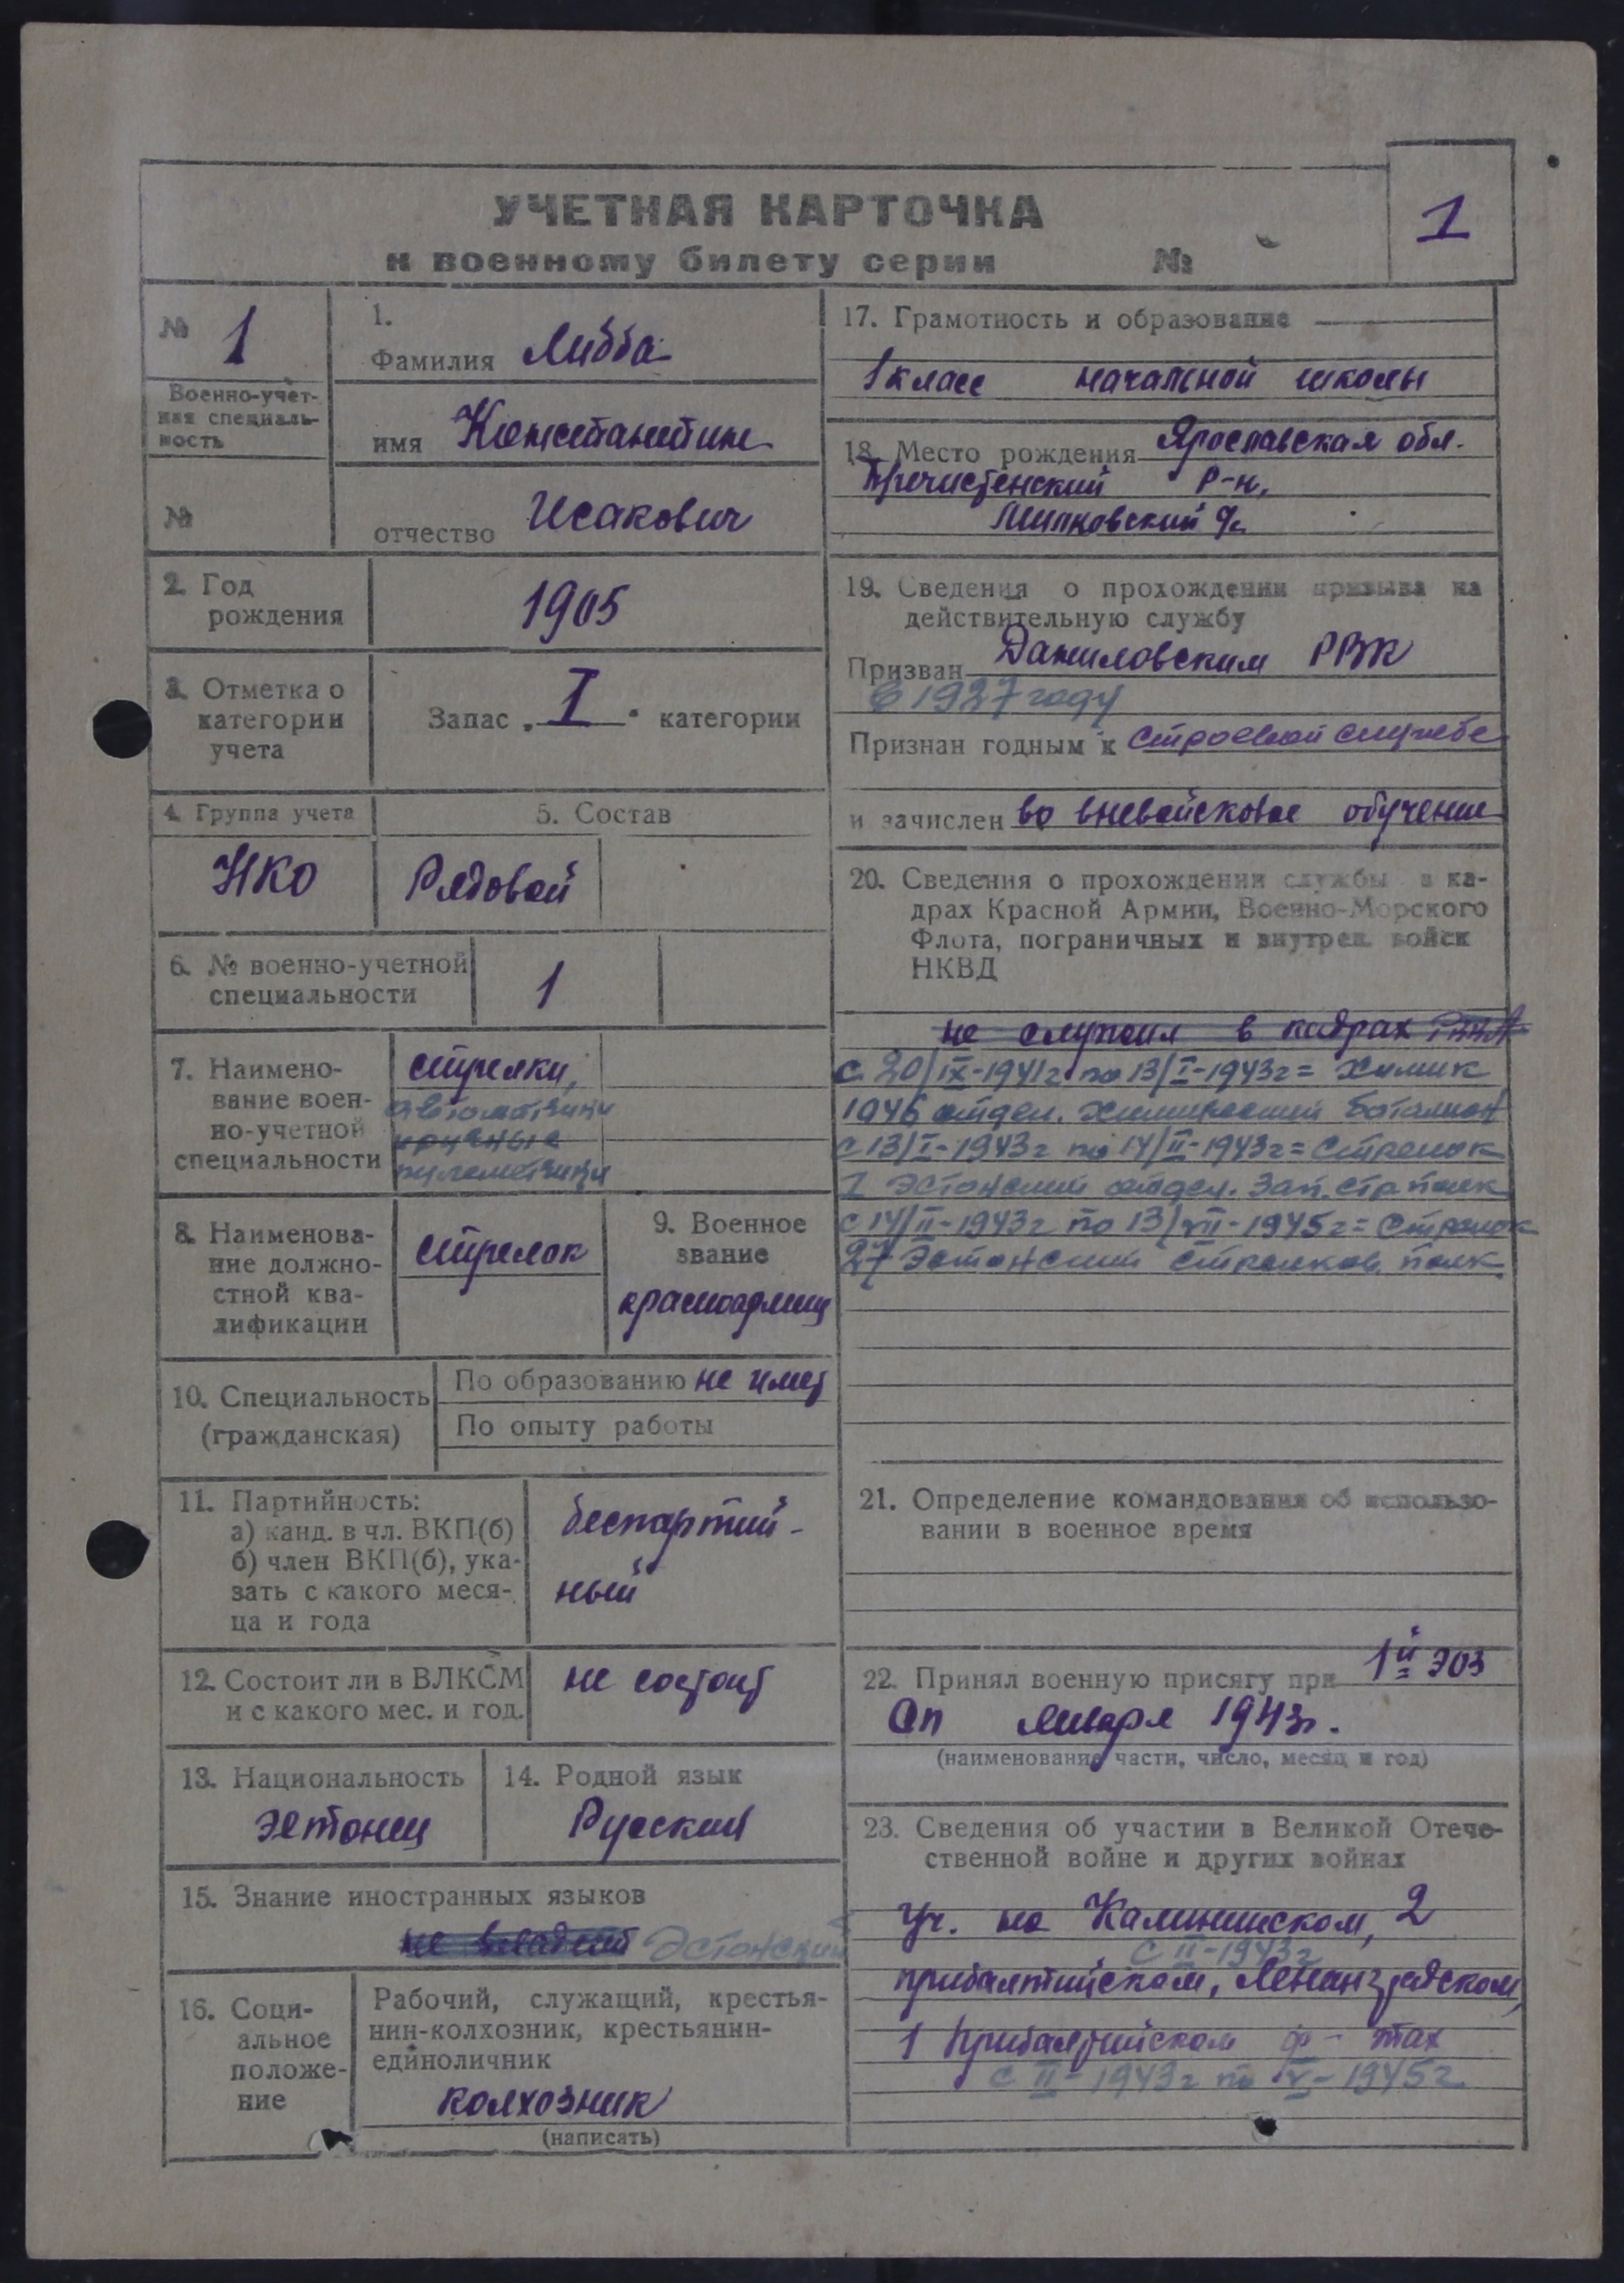 УЧЕТНАЯ КАРТОЧКА
к военному билету серии №
1
№ 1
Военно-учет-
ная специаль-
ность
№
1.
Фамилия Либба
имя Констанстин
отчество Исакович
2. Год
рождения
1905
3. Отметка о
категории
учета
Запас „ I " категории
4. Группа учета
НКО
5. Состав
Рядовой
6. № военно-учетной
специальности
1
7. Наимено-
вание воен-
но-учетной
специальности
стрелки,
автоматчики
ручные
пулеметчики
8. Наименова-
ние должно-
стной ква-
лификации
стрелок
9. Военное
звание
красноармеец
10. Специальность
(гражданская)
По образованию не имеет
По опыту работы
11. Партийность:
а) канд. в чл. ВКП(б)
б) член ВКП(б), ука-
зать с какого меся-
ца и года
беспартий-
ный
12. Состоит ли в ВЛКСМ
и с какого мес. и год.
не состоит
13. Национальность
эстонец
14. Родной язык
Русский
15. Знание иностранных языков
не владеет Эстонский
16. Соци-
альное
положе-
ние
Рабочий, служащий, крестья-
нин-колхозник, крестьянин-
единоличник
колхозник
(написать)
17. Грамотность и образование
1 класс начальной школы
18. Место рождения Ярославская обл.
Пречистенский р-н,
19. Сведения о прохождении призыва на
действительную службу
Призван Даниловским РВК
в 1927 году
Признан годным к строевой службе
и зачислен во вневойсковое обучение
20. Сведения о прохождении службы в ка-
драх Красной Армии, Военно-Морского
Флота, пограничных и внутрен. войск
НКВД
не служил в кадрах РККА
с 20/IX-1941г по 13/I-1943г = Химик
1946 отдел. химический баталион
с 13/I-1943г по 14/II-1943г = Стрелок
1 Эстонский отдел. Зап. стр полк
с 14/II-1943г по 13/VII-1945г = Стрелок
27 Эстонский стрелков. полк.
21. Определение командования об использо-
вании в военное время
22. Принял военную присягу при 1й эоз
сп января 1943г.
(наименование части, число, месяц и год)
23. Сведения об участии в Великой Отече-
ственной войне и других войнах
Уч. на Калининском, 2
с II-1943г
прибалтийском, Ленинградском,
1 Прибалтийском ф-тах
с II-1943г по V-1945г.